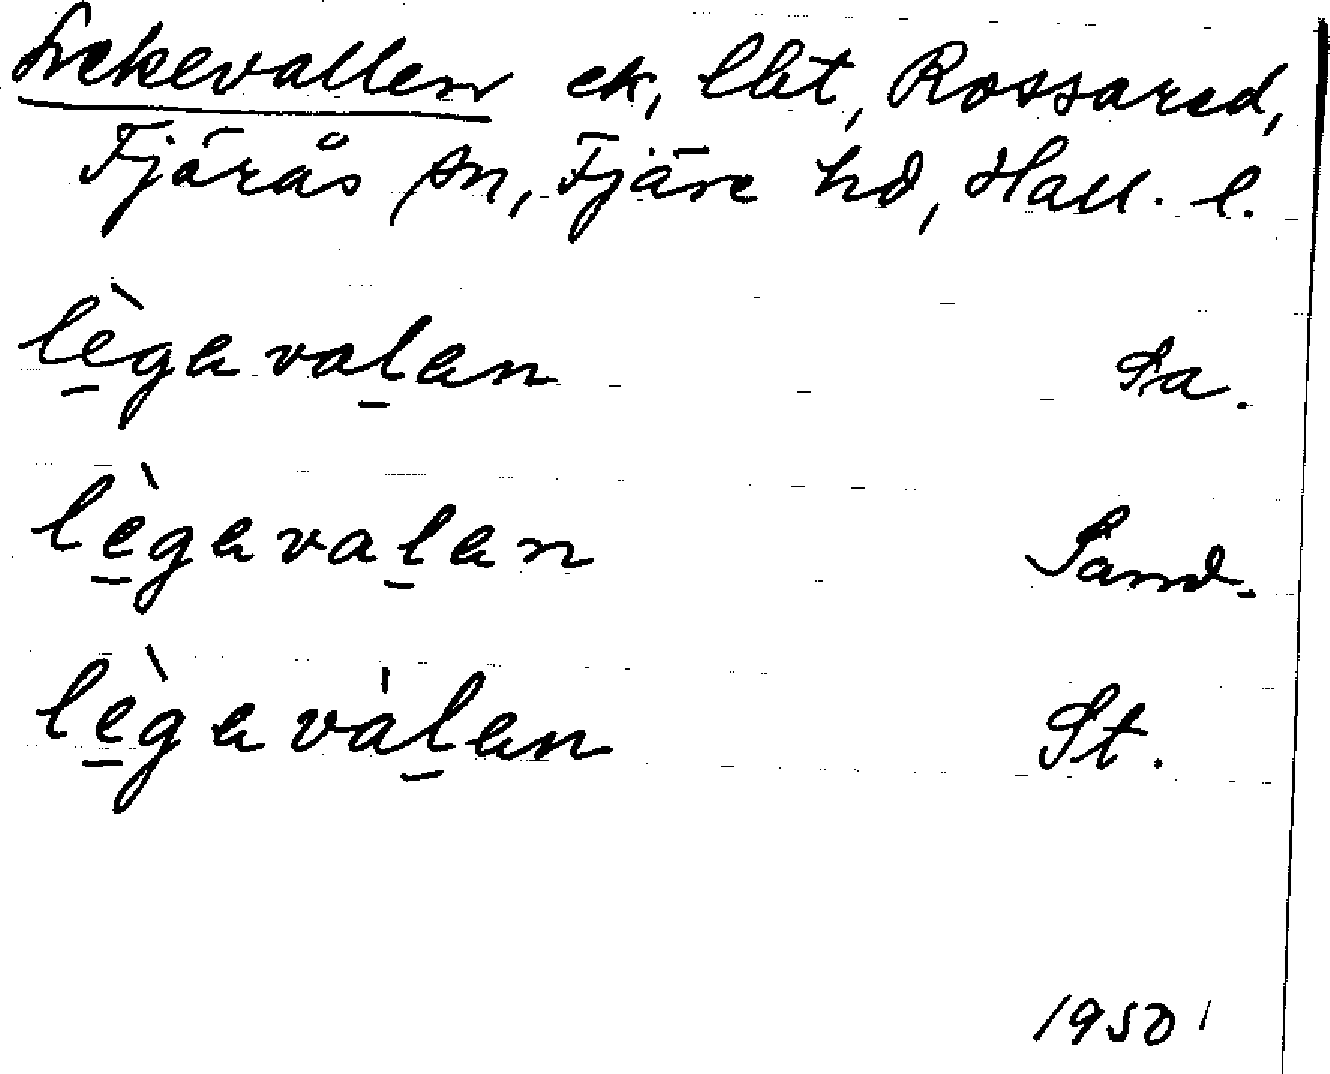 Lekevallen ek, lht, Rossared,
Fjärås sn, Fjäre hd, Hall. l.
lègavalan Sa.
lègavalan Sand.
lègavàlan St.
1950